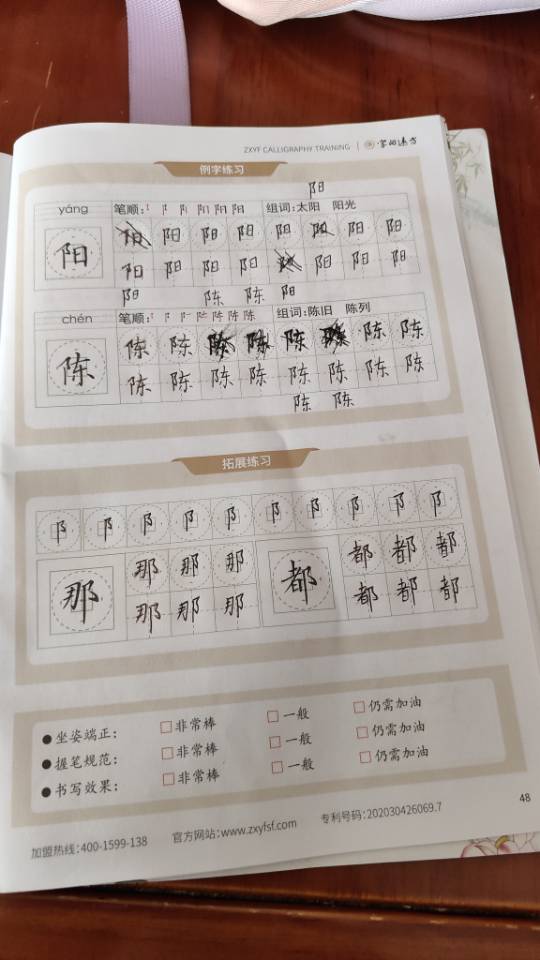 ZXYF CALLIGRAPHY TRAINING
例字练习
阳
yáng 笔顺: 阳 组词:太阳 阳光
阳 阳 阳 阳 阳 阳 阳 阳
阳 阳 阳 阳 阳 阳 阳
阳 陈 陈 阳
chén 笔顺: 陈 组词:陈旧 陈列
陈 陈 陈 陈 陈 陈 陈 陈 陈
陈 陈 陈 陈 陈 陈 陈 陈
陈 陈
拓展练习
阝 阝 阝 阝 阝 阝 阝 阝 阝 阝
那 那 那 那 都 都 都 都
那 那 那 都 都 都
坐姿端正: 非常棒 一般 仍需加油
握笔规范: 非常棒 一般 仍需加油
书写效果: 非常棒 一般 仍需加油
48
加盟热线:400-1599-138 官方网站:www.zxyfsf.com 专利号码:202030426069.7